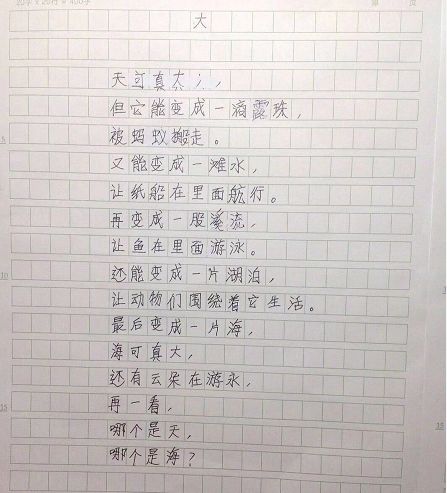 20字 x 20行 = 400字
第 页
大
天可真大；，
但它能变成一滴露珠，
被蚂蚁搬走。
又能变成一滩水，
让纸船在里面航行。
再变成一股溪流，
让鱼在里面游泳。
还能变成一片湖泊，
让动物们围绕着它生活。
最后变成一片海，
海可真大，
还有云朵在游永，
再一看，
哪个是天，
哪个是海？
5
10
15